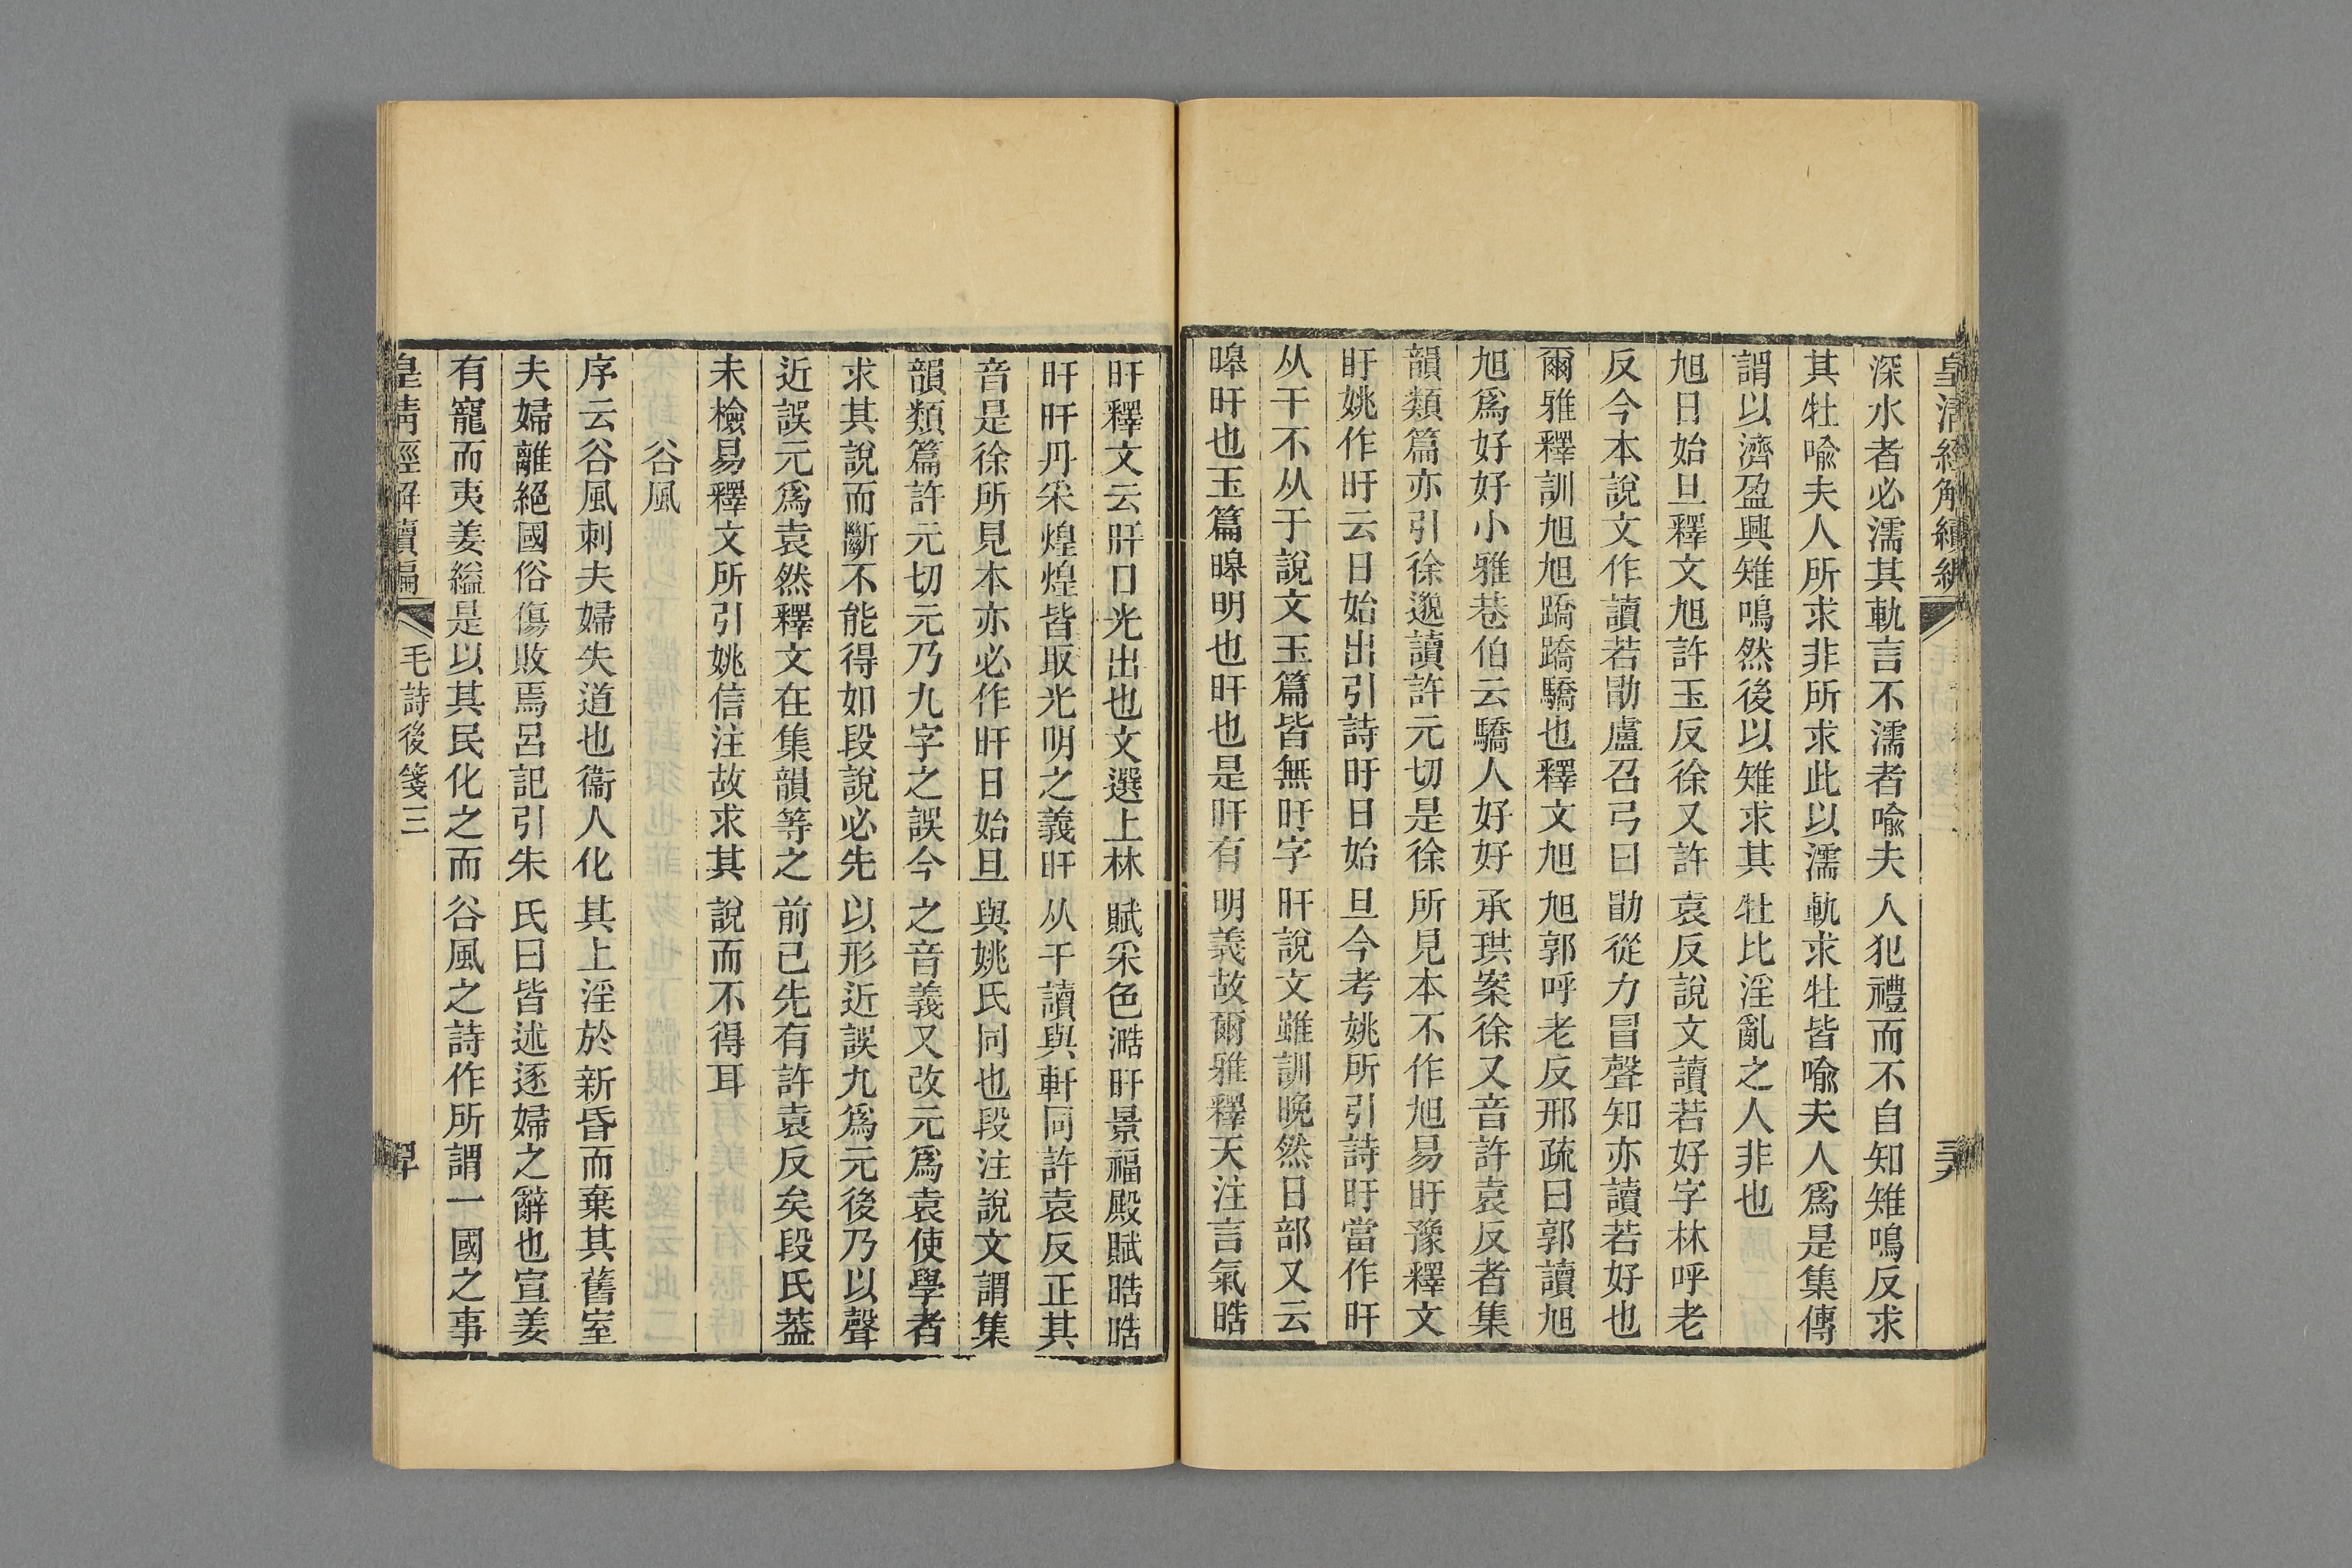 皇清經解續編
深水者必濡其軌言不濡者喻夫人犯禮而不自知雉鳴反求
其牡喻夫人所求非所求此以濡軌求牡皆喻夫人爲是集傳
謂以濟盈興雉鳴然後以雉求其牡比淫亂之人非也
旭日始旦釋文旭許玉反徐又許袁反說文讀若好字林呼老
反今本說文作讀若勖盧召弓曰勖從力冒聲知亦讀若好也
爾雅釋訓旭旭蹻蹻驕也釋文旭旭郭呼老反邢疏曰郭讀旭
旭爲好好小雅巷伯云驕人好好承珙案徐又音許袁反者集
韻類篇亦引徐邈讀許元切是徐所見本不作旭易盱豫釋文
盱姚作旴云日始出引詩旴日始旦今考姚所引詩旴當作旰
从干不从于說文玉篇皆無旴字旰說文雖訓晚然日部又云
暤旰也玉篇暤明也旰也是旰有明義故爾雅釋天注言氣晧
旰釋文云旰日光出也文選上林賦采色澔旰景福殿賦晧晧
旰旰丹采煌煌皆取光明之義旰从干讀與軒同許袁反正其
音是徐所見本亦必作旰日始旦與姚氏同也段注說文謂集
韻類篇許元切元乃九字之誤今之音義又改元爲袁使學者
求其說而斷不能得如段說必先以形近誤九爲元後乃以聲
近誤元爲袁然釋文在集韻等之前已先有許袁反矣段氏葢
未檢易釋文所引姚信注故求其說而不得耳
谷風
序云谷風刺夫婦失道也衞人化其上淫於新昏而棄其舊室
夫婦離絕國俗傷敗焉呂記引朱氏曰皆述逐婦之辭也宣姜
有寵而夷姜縊是以其民化之而谷風之詩作所謂一國之事
皇清經解續編
毛詩後箋三